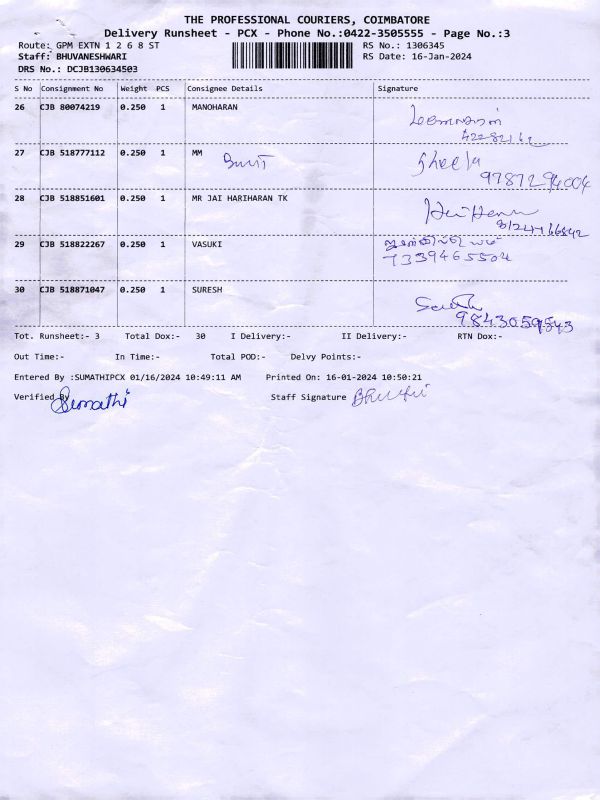 THE PROFESSIONAL COURIERS, COIMBATORE
Delivery Runsheet - PCX - Phone No.:0422-3505555 - Page No.:3
Route: GPM EXTN 1 2 6 8 ST RS No.: 1306345
Staff: BHUVANESHWARI RS Date: 16-Jan-2024
DRS No.: DCJB130634503
S No Consignment No Weight PCS Consignee Details Signature
26 CJB 80074219 0.250 1 MANOHARAN
27 CJB 518777112 0.250 1 MM Sheela
9787294004
28 CJB 518851601 0.250 1 MR JAI HARIHARAN TK
29 CJB 518822267 0.250 1 VASUKI
7339465504
30 CJB 518871047 0.250 1 SURESH
9843059543
Tot. Runsheet:- 3 Total Dox:- 30 I Delivery:- II Delivery:- RTN Dox:-
Out Time:- In Time:- Total POD:- Delvy Points:-
Entered By :SUMATHIPCX 01/16/2024 10:49:11 AM Printed On: 16-01-2024 10:50:21
Verified By Sumathi Staff Signature